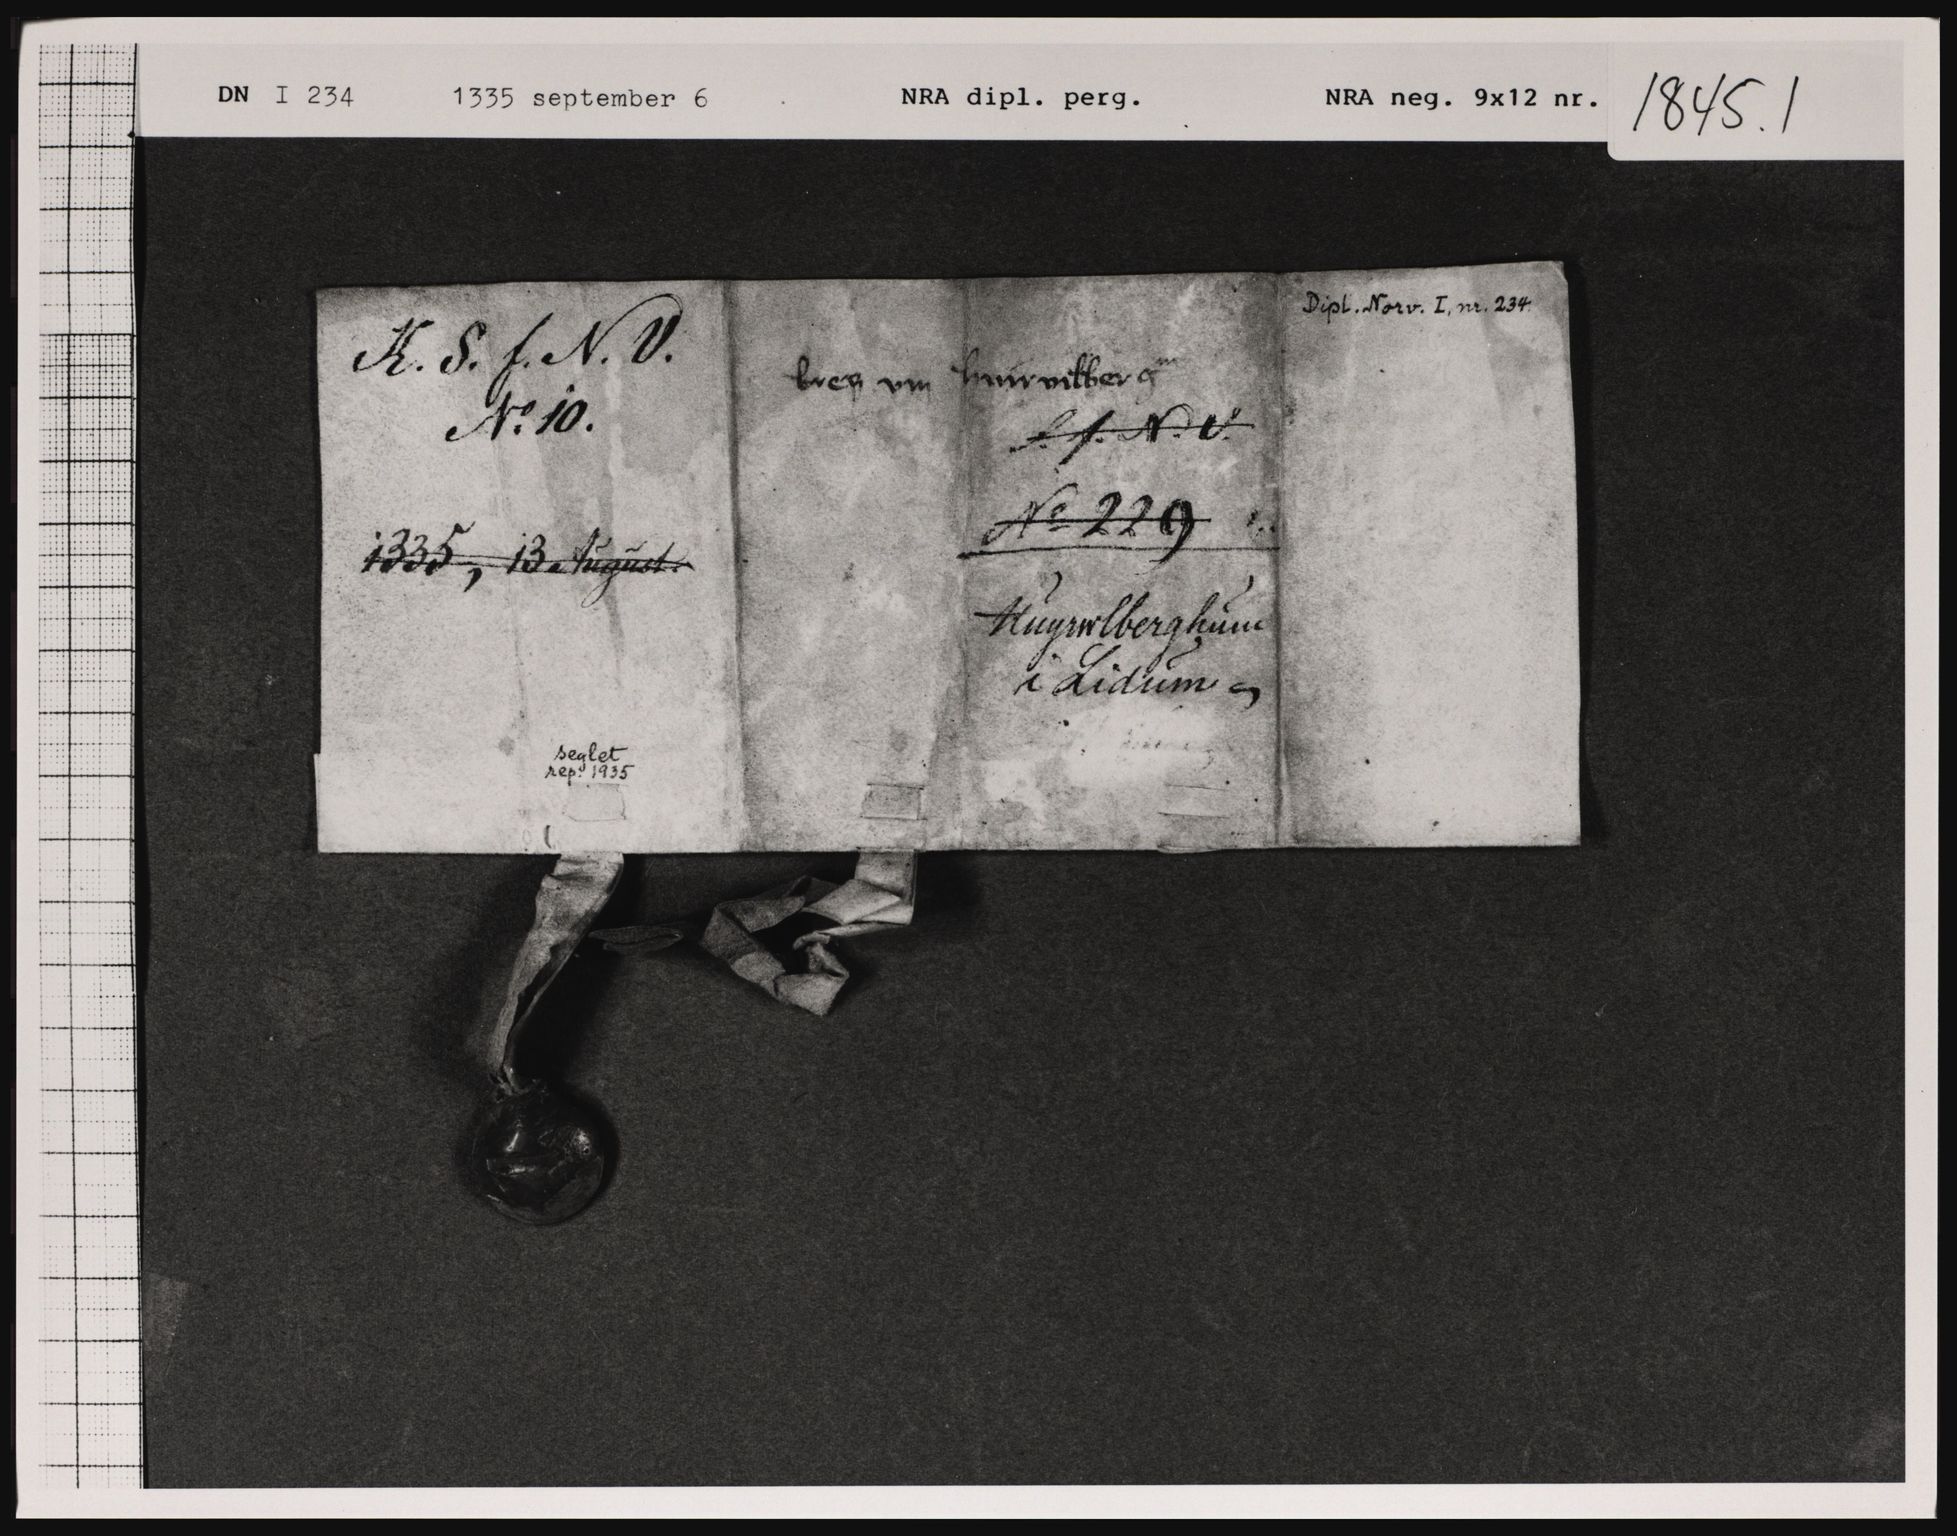 DN I 234 1335 september 6 NRA dipl. perg. NRA neg. 9x12 nr. 1845.1
Dipl. Norv. I, nr. 234.
K. S. f. N. V.
No. 10.
1335, 13 August.
breff vm
S. f. N. V.
No 229
i Lidum
seglet
rep. 1935